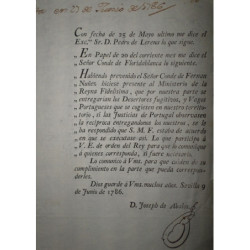 en 23 de Junio de 1786
Con fecha de 25 de Mayo ultimo me dice el
Exc.mo Sr. D. Pedro de Lerena lo que sigue.
En Papel de 20 del corriente mes me dice el
Señor Conde de Floridablanca lo siguiente.
Habiendo prevenido el Señor Conde de Fernan
Nuñez hiciese presente al Ministerio de la
Reyna Fidelisima, que por nuestra parte se
entregarian los Desertores fugitivos, y Vagos
Portugueses que se cogiesen en nuestro territo-
rio, si las Justicias de Portugal observaren
la reciproca entregandonos los nuestros, se le
ha respondido que S. M. F. estaba de acuerdo
en que se executase asi. Lo que participo á
V. E. de orden del Rey para que lo comunique
á quienes corresponda, si fuere necesario.
Lo comunico á Vms. para que cuiden de su
cumplimiento en la parte que pueda correspon-
derles.
Dios guarde á Vms. muchos años. Sevilla 9
de Junio de 1786.
D. Joseph de